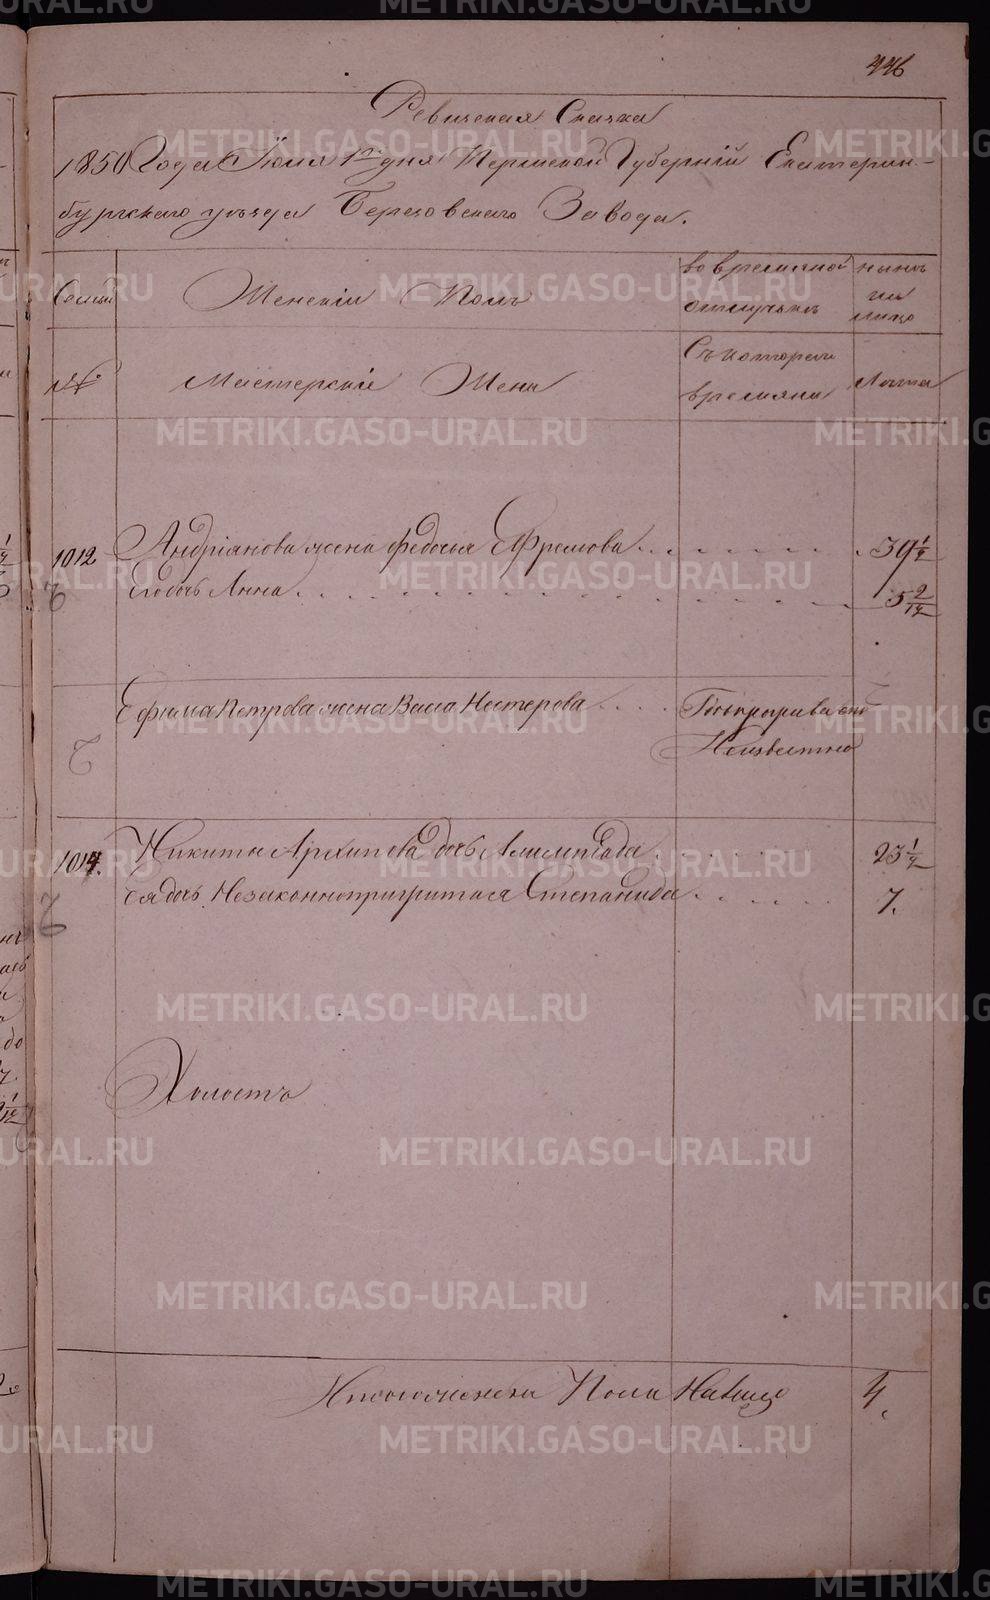 446
Ревизская Сказка
1850 Года Июля 1го дня Пермской Губерніи Екатерин-
бургскаго уезда Березовскаго Завода.
Семьи
Женскій Полъ
во временной
отлучке
ныне
на
лицо
№
Мастерскіе Жены
Съ котораго
времяни
Лета
1012
Андріянова жена Федосья Ефремова
39 1/2
Его дочь Анна
5 2/12
Ефима Петрова жена Васса Нестерова
Неизвестно
1014.
Никиты Архипова дочь Алимпіада
23 1/2
ея дочь Незаконноприжитая Степанида
7.
Холостъ
Итого женска Пола На лицо
4
METRIKI.GASO-URAL.RU